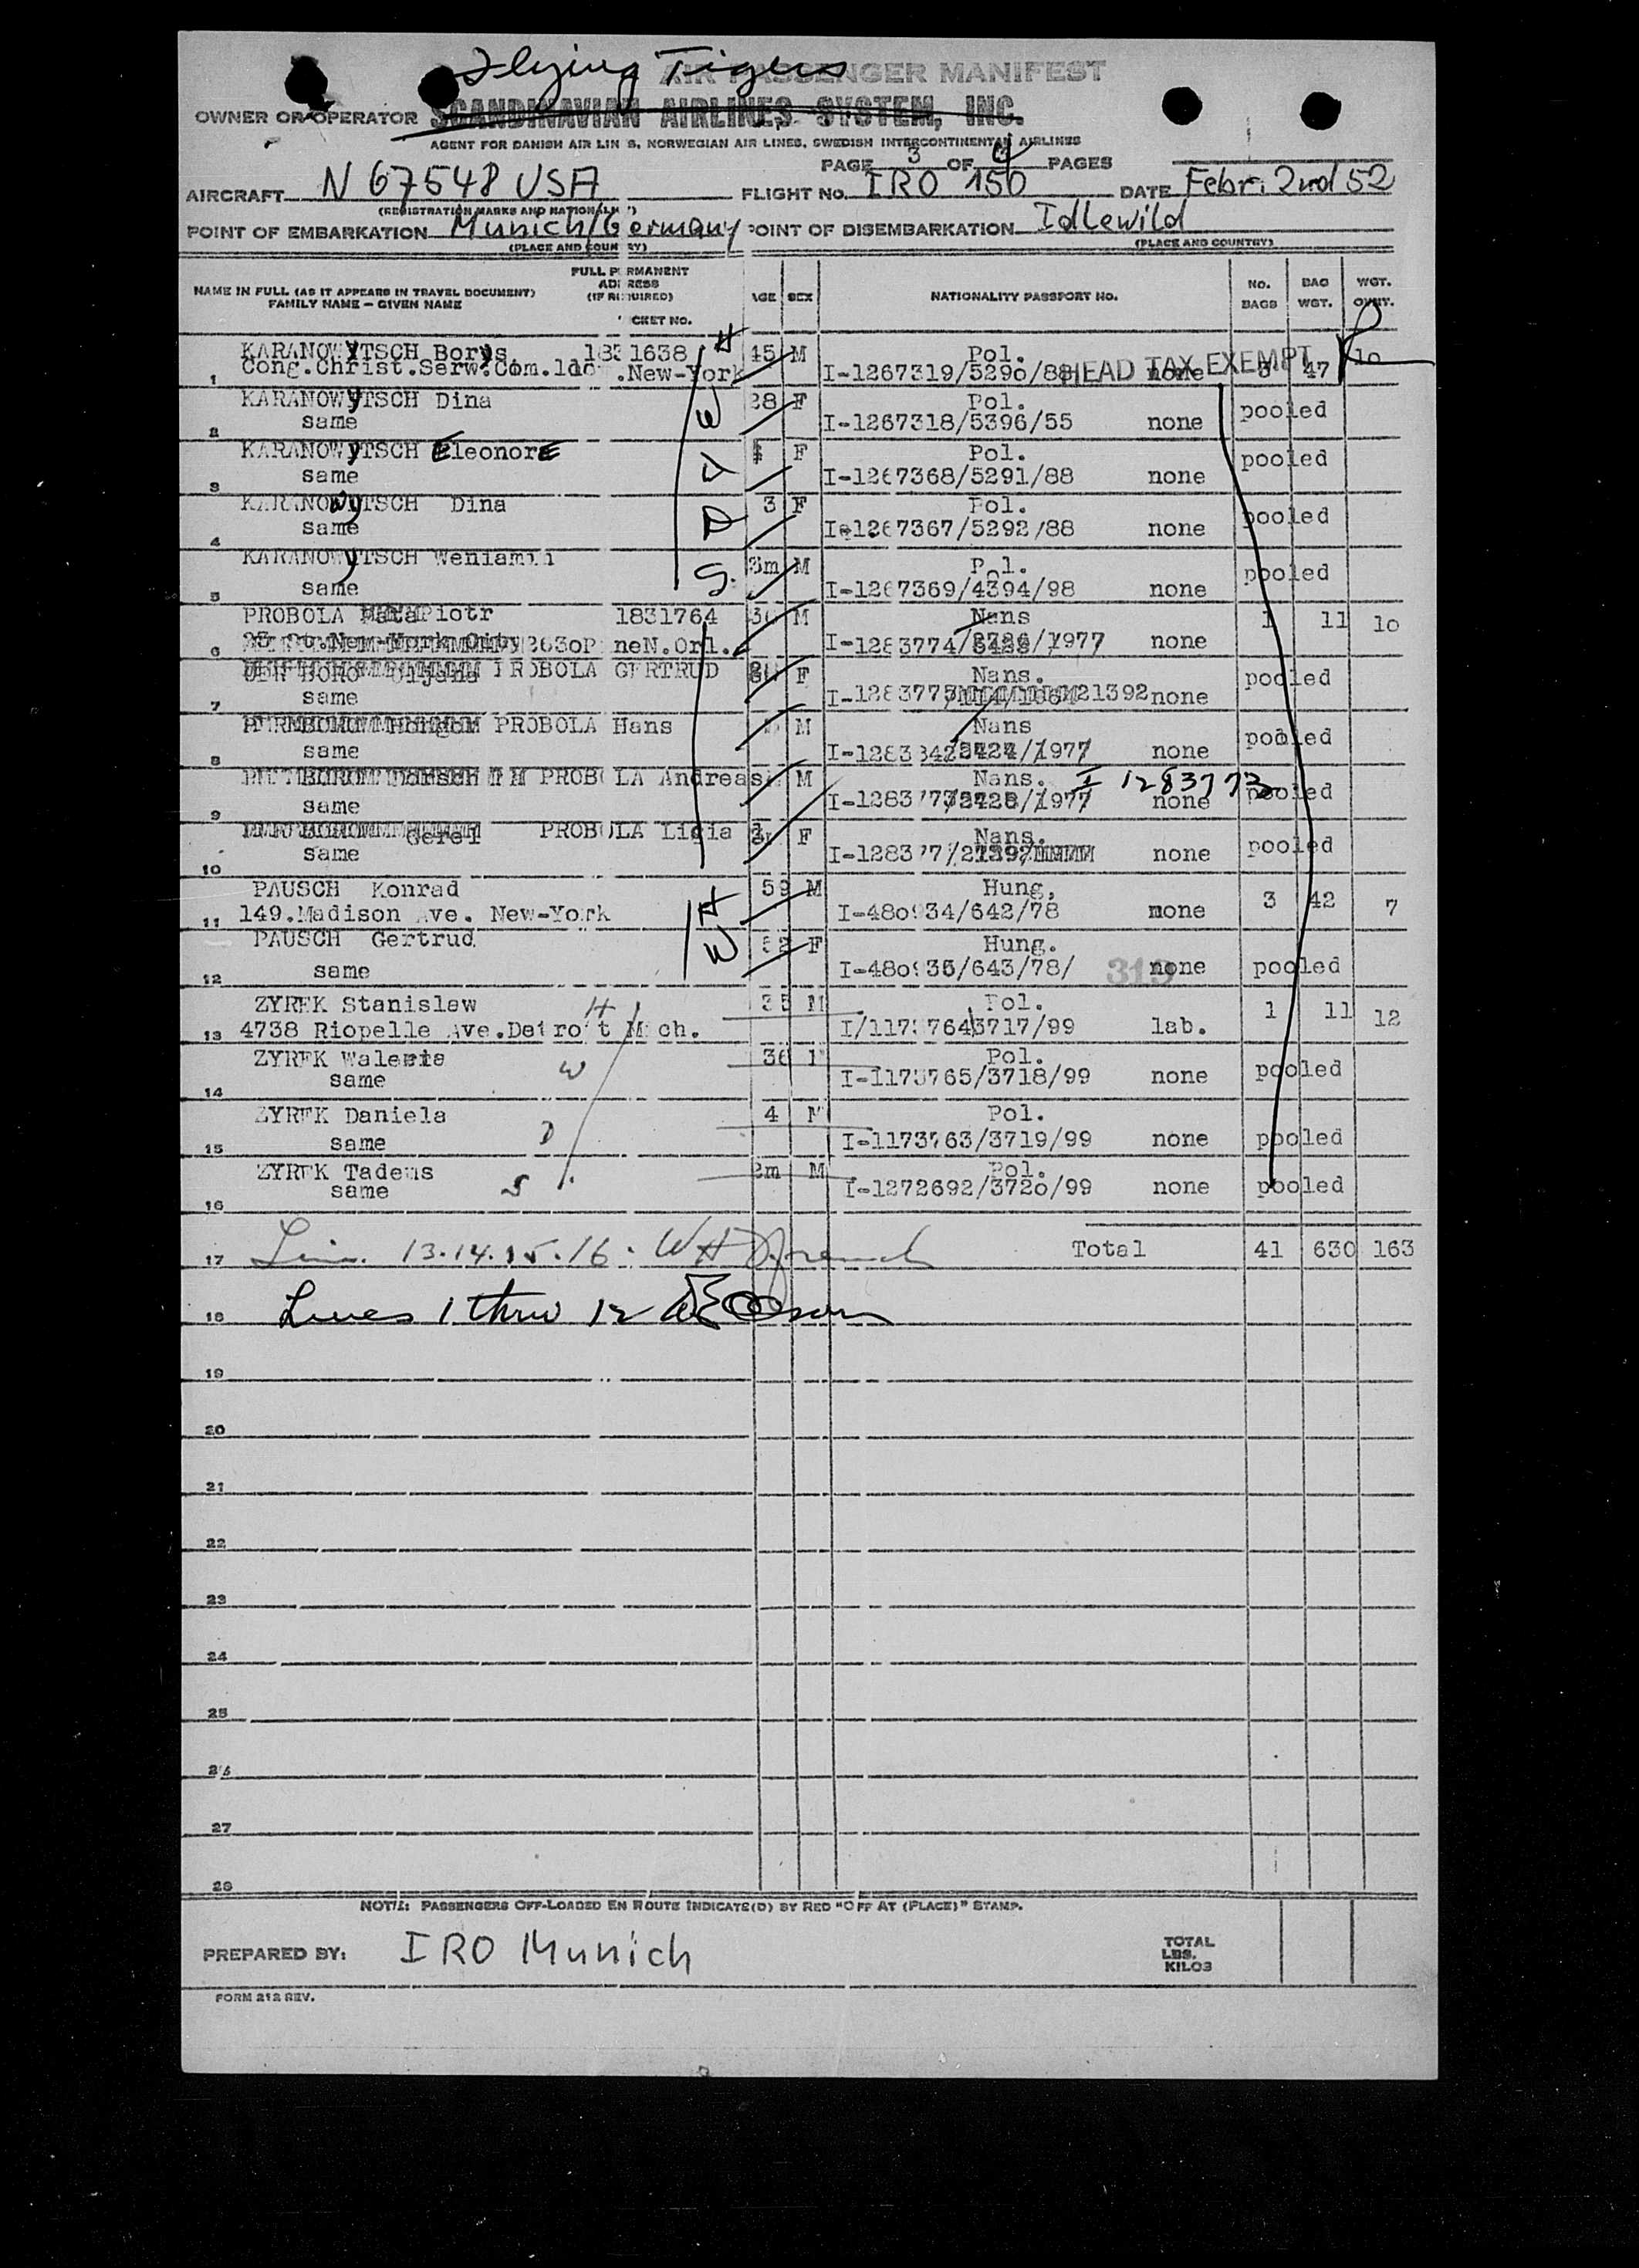 Flying Tigers
AIR PASSENGER MANIFEST
OWNER OR OPERATOR SCANDINAVIAN AIRLINES SYSTEM, INC.
AGENT FOR DANISH AIR LIN S, NORWEGIAN AIR LINES, SWEDISH INTERCONTINENTAL AIRLINES
PAGE 3 OF PAGES
AIRCRAFT N 67548 USA FLIGHT No. IRO 150 DATE Febr. 2nd 52
(REGISTRATION MARKS AND NATIONALITY)
POINT OF EMBARKATION Munich/Germany POINT OF DISEMBARKATION Idlewild
(PLACE AND COUNTRY) (PLACE AND COUNTRY)
NAME IN FULL (AS IT APPEARS IN TRAVEL DOCUMENT) FAMILY NAME – GIVEN NAME FULL PERMANENT ADDRESS (IF REQUIRED) TICKET NO. AGE SEX NATIONALITY PASSPORT NO. NO. BAGS BAG WGT. WGT.
KARANOWYTSCH Borys 1831638 H 45 M Pol. 10
1 Cong.Christ.Serw.Com. .New-York I-1267319/5290/88 HEAD TAX EXEMPT none 3 47
KARANOWYTSCH Dina W 28 F Pol. pooled
2 same I-1267318/5396/55 none
KARANOWYTSCH EleonorE F Pol. pooled
3 same D I-1267368/5291/88 none
KARANOWYTSCH Dina 3 F Pol. pooled
4 same D I-1267367/5292/88 none
KARANOWYTSCH Weniamin S. 3m M Pol. pooled
5 same I-1267369/4394/98 none
PROBOLA Piotr 1831764 M Nans 1 11 10
6 N.Orl. I-1283774/ /1977 none
PROBOLA GERTRUD F Nans. pooled
7 same 21392 none
PROBOLA Hans M Nans pooled
8 same /1977 none
PROBOLA Andreas M Nans. I 1283773 pooled
9 same /1977 none
PROBOLA Ligia F Nans. pooled
10 same none
PAUSCH Konrad H 59 M Hung. 3 42 7
11 149.Madison Ave. New-York I-480934/642/78 none
PAUSCH Gertrud W 52 F Hung. pooled
12 same I-480935/643/78/ 319 none
ZYREK Stanislaw H 35 M Pol. 1 11 12
13 4738 Riopelle Ave.Detroit Mich. I/1173764/3717/99 lab.
ZYREK Waleria W 36 Pol. pooled
14 same I-1173765/3718/99 none
ZYREK Daniela 4 M Pol. pooled
15 same D I-1173763/3719/99 none
ZYREK Tadeus 2m M Pol. pooled
16 same S. I-1272692/3720/99 none
17 Lin. 13.14.15.16. Total 41 630 163
18 Lines 1 thru 12
19
20
21
22
23
24
25
26
27
28
NOTE: PASSENGERS OFF-LOADED EN ROUTE INDICATE(D) BY RED "OFF AT (PLACE)" STAMP.
PREPARED BY: IRO Munich TOTAL LBS. KILOS
FORM 212 REV.